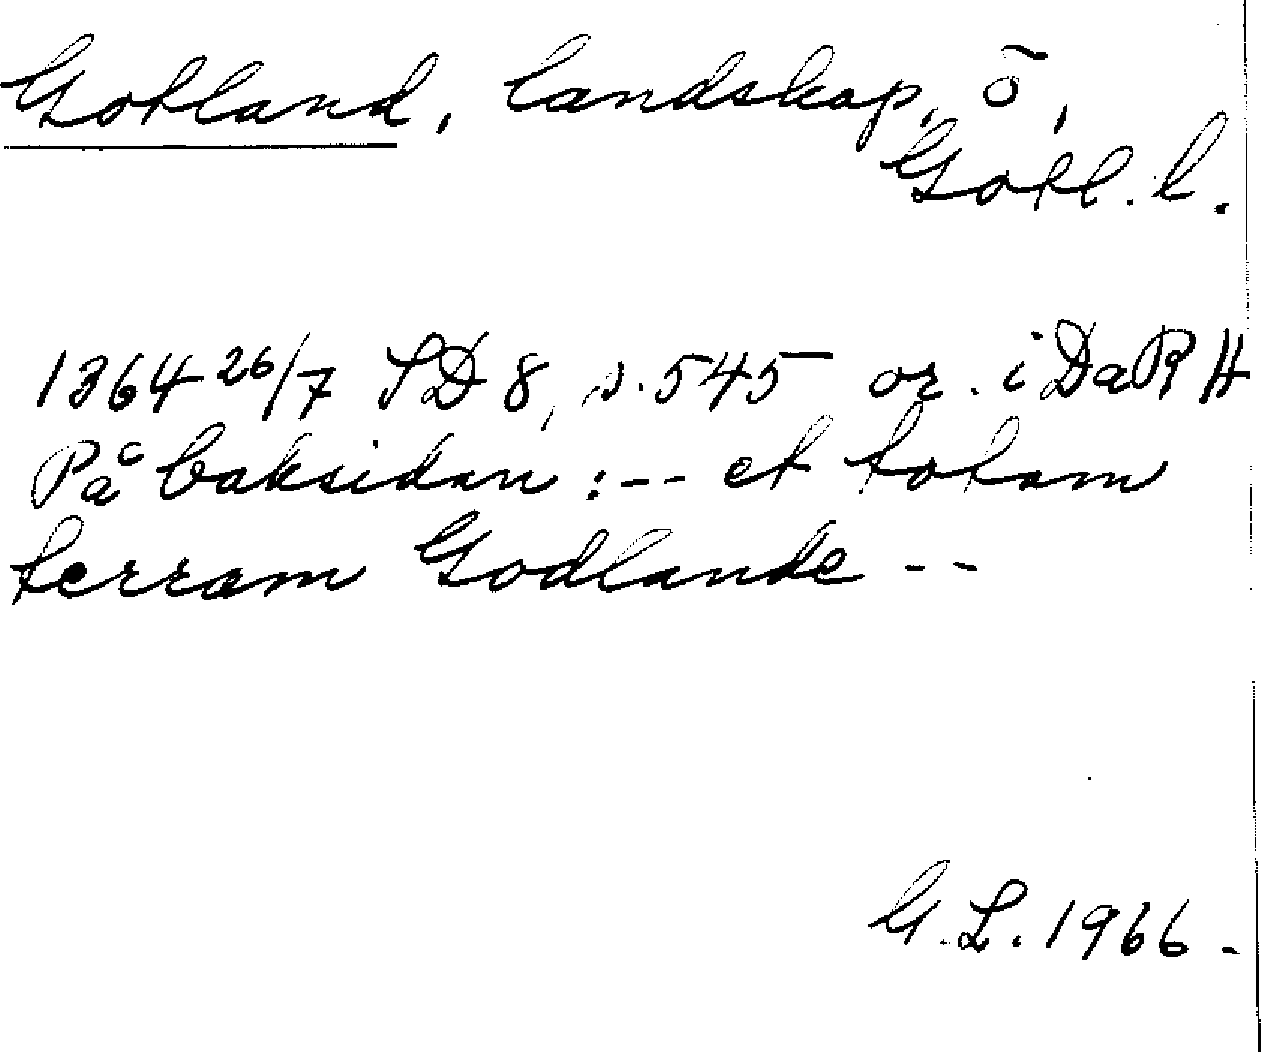 Gotland, landskap, ö,
Gotl. l.
1364 26/7 SD 8, s. 545 or. i DaRH
På baksidan : -- et totam
terram Godlande --
G. L. 1966 -